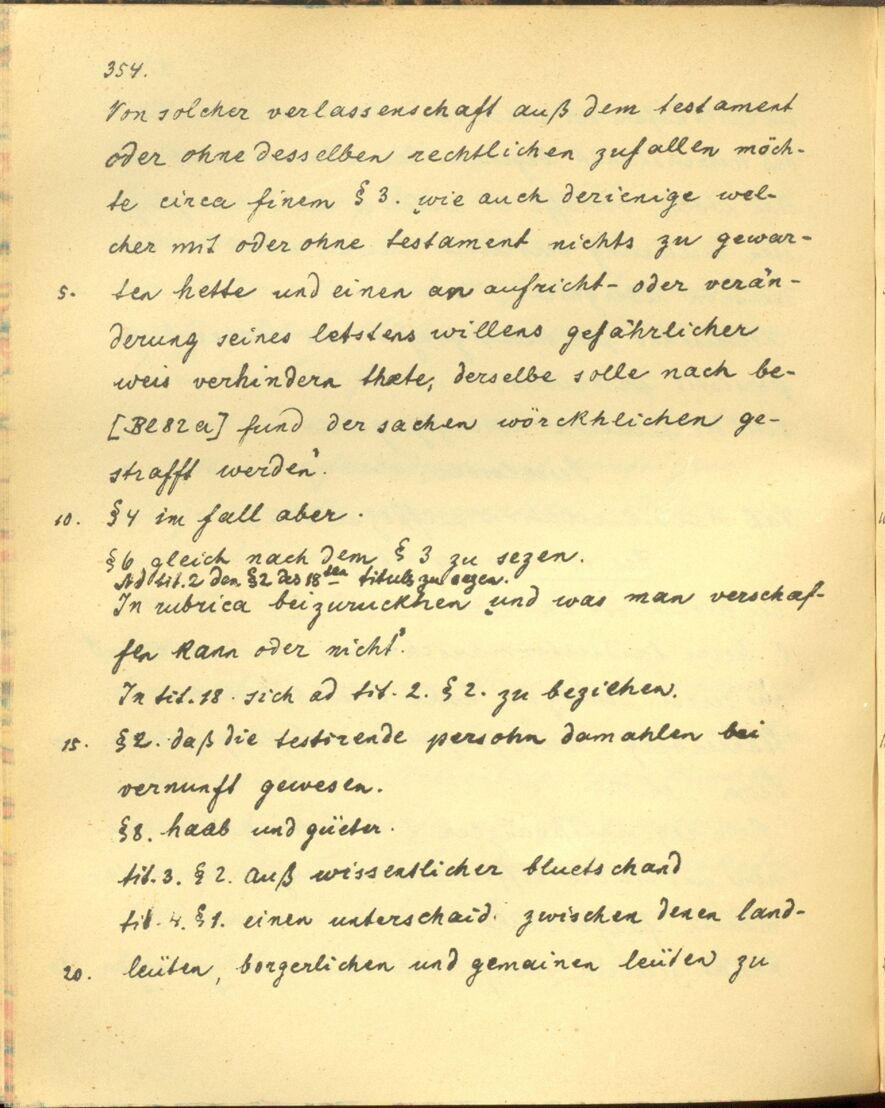 354.
Von solcher verlassenschaft auß dem testament
oder ohne desselben rechtlichen zufallen möch-
te circa finem § 3. „wie auch derienige wel-
cher mit oder ohne testament nichts zu gewar-
5. ten hette und einen an aufricht- oder verän-
derung seines letstens willens gefährlicher
weis verhindern thæte, derselbe solle nach be-
[Bl 82 a] fund der sachen wörckhlichen ge-
strafft werden".
10. §4 im fall aber.
§6 gleich nach dem § 3 zu sezen.
Ad tit. 2 den §2 des 18ten tituls zu sezen.
In rubrica beizuruckhen „und was man verschaf-
fen kann oder nicht".
In tit. 18 sich ad tit. 2. § 2. zu beziehen.
15. §2. daß die testirende persohn damahlen bei
vernunft gewesen.
§8. haab und güeter.
tit. 3. § 2. auß wissentlicher bluetschand
tit. 4. §1. einen unterschaid zwischen denen land-
20. leüten, borgerlichen und gemainen leüten zu